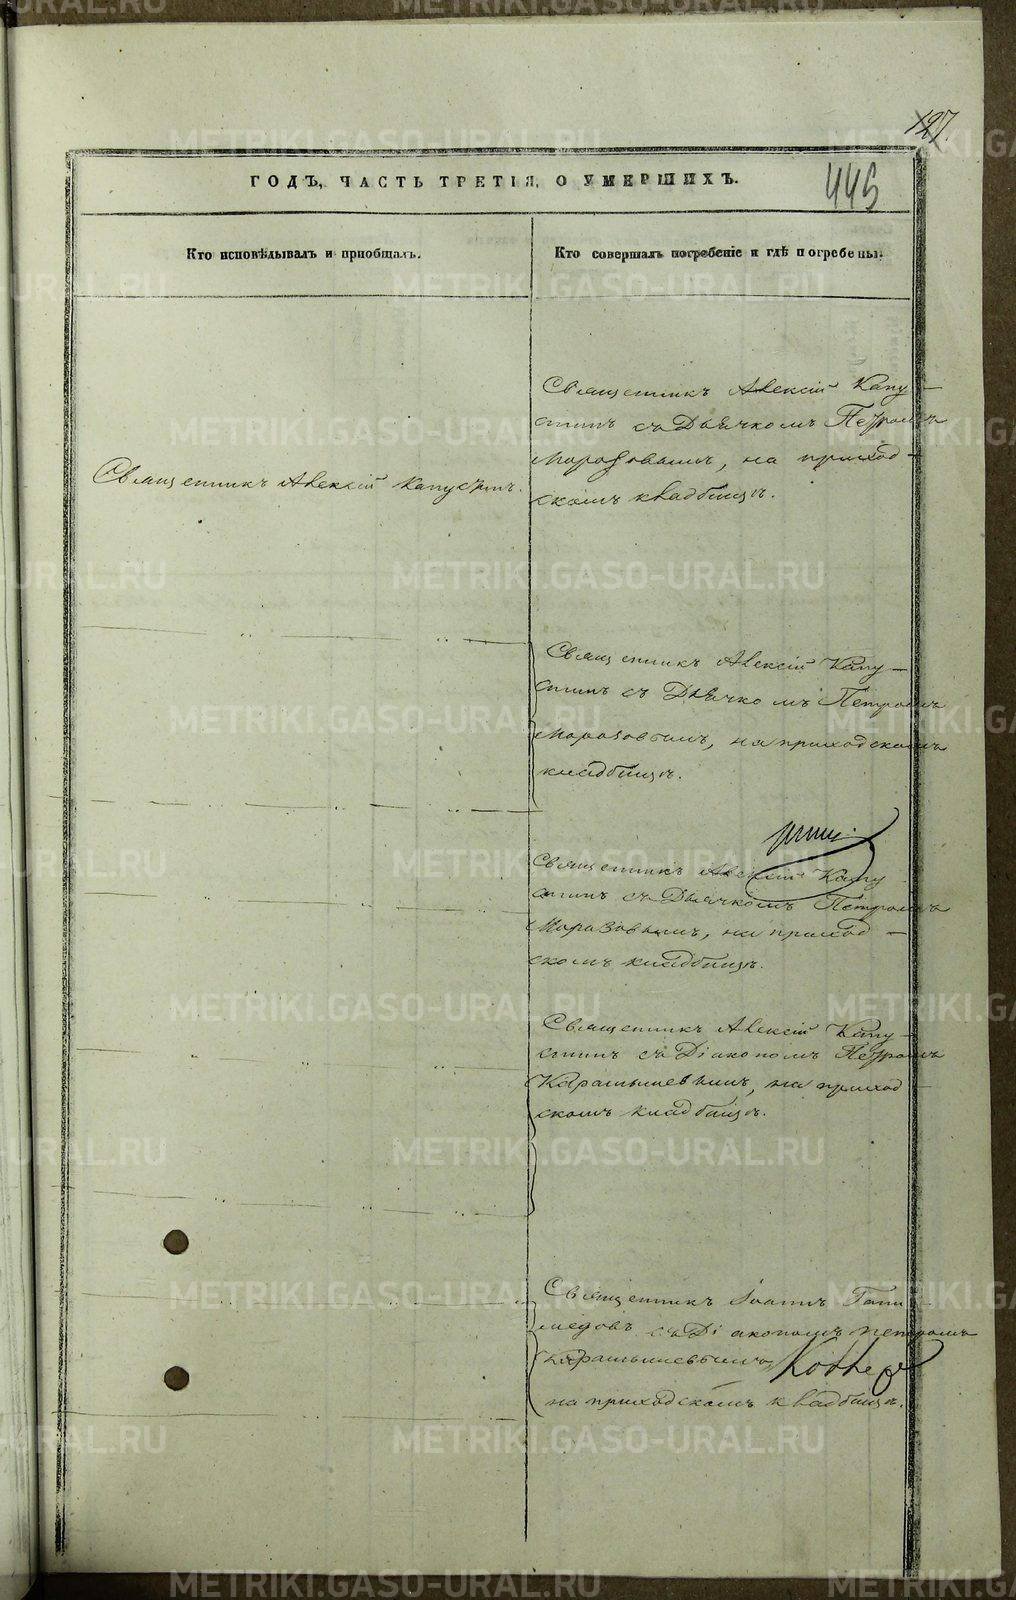 127
445
ГОДЪ, ЧАСТЬ ТРЕТІЯ, О УМЕРШИХЪ.
Кто исповѣдывалъ и приобщалъ.
Кто совершалъ погребеніе и гдѣ погребены.
Священникъ Алексій Капустинъ.
Священникъ Алексій Капу-
стинъ съ Дьячкомъ Петромъ
Морозовымъ, на приход-
скомъ кладбищѣ.
Священникъ Алексій Капу-
стинъ съ Дьячкомъ Петромъ
Морозовымъ, на приходскомъ
кладбищѣ.
Священникъ Алексій Капу
стинъ съ Дьячкомъ Петромъ
Морозовымъ, на приход-
скомъ кладбищѣ.
Священникъ Алексій Капу-
стинъ съ Діакономъ Петромъ
Карамышевымъ, на приход-
скомъ кладбищѣ.
Священникъ Іоаннъ Гани-
медовъ съ Діакономъ Петромъ
Карамышевымъ,
на приходскомъ кладбищѣ.
METRIKI.GASO-URAL.RU